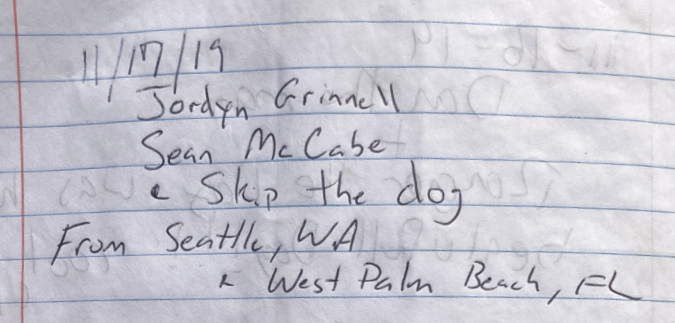 11/17/19
Jordyn Grinnell
Sean McCabe
& Skip the dog
From Seattle, WA
& West Palm Beach, FL